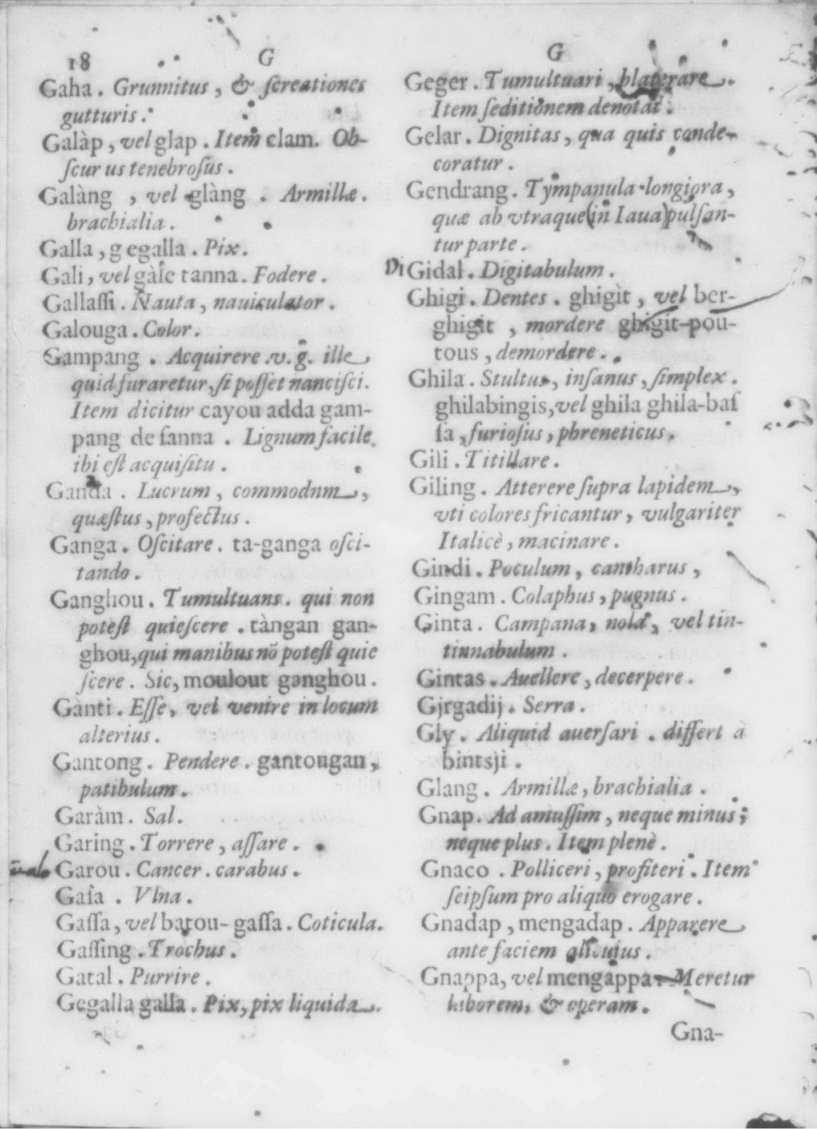 18 G
Gaha. Grunnitus, & screationes
gutturis.
Galàp, vel glap. Item clam. Ob-
scurus tenebrosus.
Galàng, vel glàng. Armillæ.
brachialia.
Galla, gegalla. Pix.
Gali, vel gale tanna. Fodere.
Gallassi. Nauta, nauiculator.
Galouga. Color.
Gampang. Acquirere .v.g. ille
quid furaretur, si posset nancisci.
Item dicitur cayou adda gam-
pang de sanna. Lignum facile
ibi est acquisitu.
Ganda. Lucrum, commodum,
quæstus, profectus.
Ganga. Oscitare. ta-ganga osci-
tando.
Ganghou. Tumultuans. qui non
potest quiescere. tàngan gan-
ghou, qui manibus nõ potest quie
scere. Sic, moulout ganghou.
Ganti. Esse, vel venire in locum
alterius.
Gantong. Pendere. gantongan,
patibulum.
Garàm. Sal.
Garing. Torrere, assare.
Garou. Cancer. carabus.
Gasa. Vlna.
Gassa, vel batou-gassa. Coticula.
Gassing. Trochus.
Gatal. Purrire.
Gegalla galla. Pix, pix liquida.
G
Geger. Tumultuari, blaterare.
Item seditionem denotat.
Gelar. Dignitas, qua quis conde-
coratur.
Gendrang. Tympanula longiora,
quæ ab vtraque (in Iaua) pulsan-
tur parte.
Di Gidal. Digitabulum.
Ghigi. Dentes. ghigìt, vel ber-
ghigit, mordere ghigit-pou-
tous, demordere.
Ghila. Stultus, insanus, simplex.
ghilabingis, vel ghila ghila-bas
sa, furiosus, phreneticus.
Gili. Titillare.
Giling. Atterere supra lapidem,
vti colores fricantur, vulgariter
Italicè, macinare.
Gindi. Poculum, cantharus,
Gingam. Colaphus, pugnus.
Ginta. Campana, nola, vel tin-
tinnabulum.
Gintas. Auellere, decerpere.
Girgadij. Serra.
Gly. Aliquid auersari. differt à
bintsji.
Glang. Armillæ, brachialia.
Gnap. Ad amussim, neque minus;
neque plus. Item plenè.
Gnaco. Polliceri, profiteri. Item
seipsum pro aliquo erogare.
Gnadap, mengadap. Apparere
ante faciem alicuius.
Gnappa, vel mengappa. Meretur
laborem, & operam.
Gna-